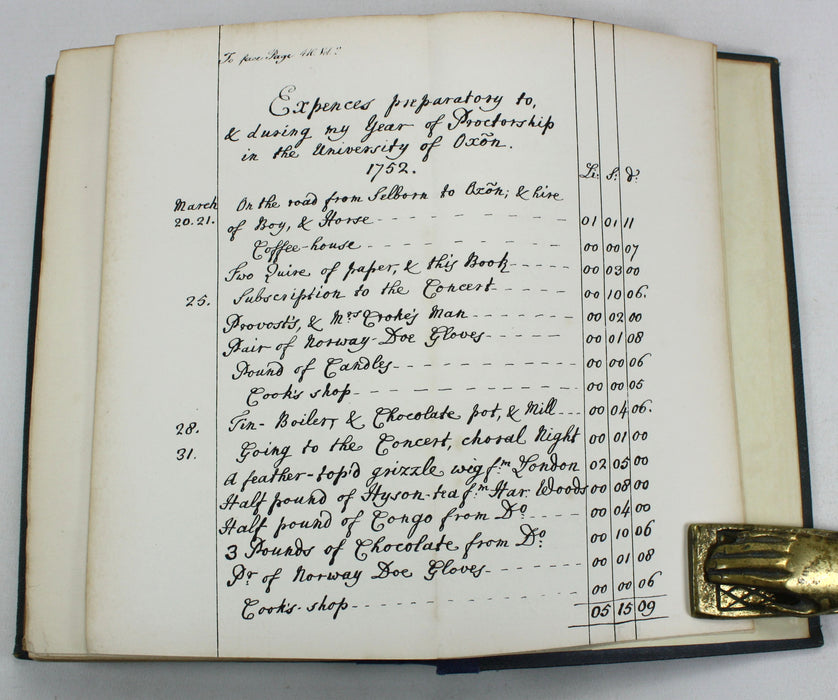 To face Page 410 Vol. 2
Expences preparatory to,
& during my Year of Proctorship
in the University of Oxõn.
1752.
Li: s: d:
March On the road from Selborn to Oxõn; & hire
20.21. of Boy, & Horse 01 01 11
Coffee-house 00 00 07
Two Quire of paper, & this Book 00 03 00
25. Subscription to the Concert 00 10 06.
Provost's, & Mrs Croke's Man 00 02 00
Pair of Norway-Doe Gloves 00 01 08
Pound of Candles 00 00 06
Cook's shop 00 00 05
28. Tin-Boiler, & Chocolate pot, & Mill 00 04 06.
31. Going to the Concert, choral Night 00 01 00
A feather-top'd grizzle wig fm London 02 05 00
Half pound of Hyson-tea fm Har. Woods 00 08 00
Half pound of Congo from Do 00 04 00
3 Pounds of Chocolate from Do 00 10 06
Pr of Norway Doe Gloves 00 01 08
Cook's-shop 00 00 06
05 15 09